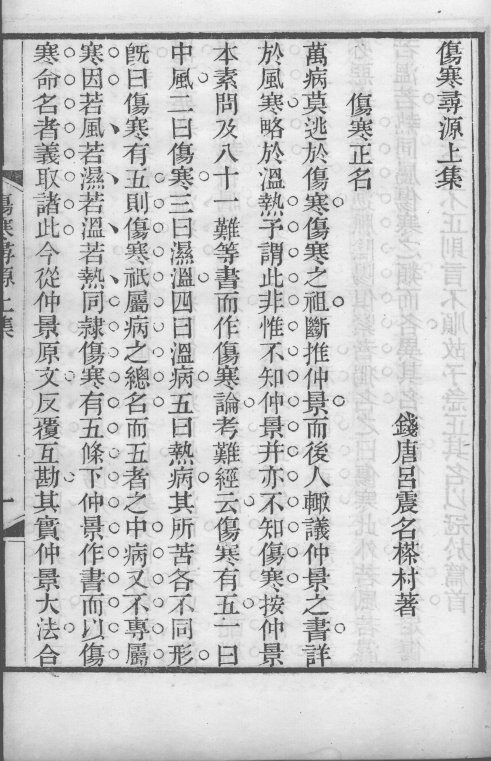 傷寒尋源上集
錢唐呂震名㮣村著
傷寒正名
萬病莫逃於傷寒傷寒之祖斷推仲景而後人輙議仲景之書詳
於風寒略於溫熱予謂此非惟不知仲景并亦不知傷寒按仲景
本素問及八十一難等書而作傷寒論考難經云傷寒有五一曰
中風二曰傷寒三曰濕溫四曰溫病五曰熱病其所苦各不同形
旣曰傷寒有五則傷寒祇屬病之總名而五者之中病又不專屬
寒因若風若濕若溫若熱同隸傷寒有五條下仲景作書而以傷
寒命名者義取諸此今從仲景原文反覆互勘其實仲景大法合
傷寒尋源上集
一